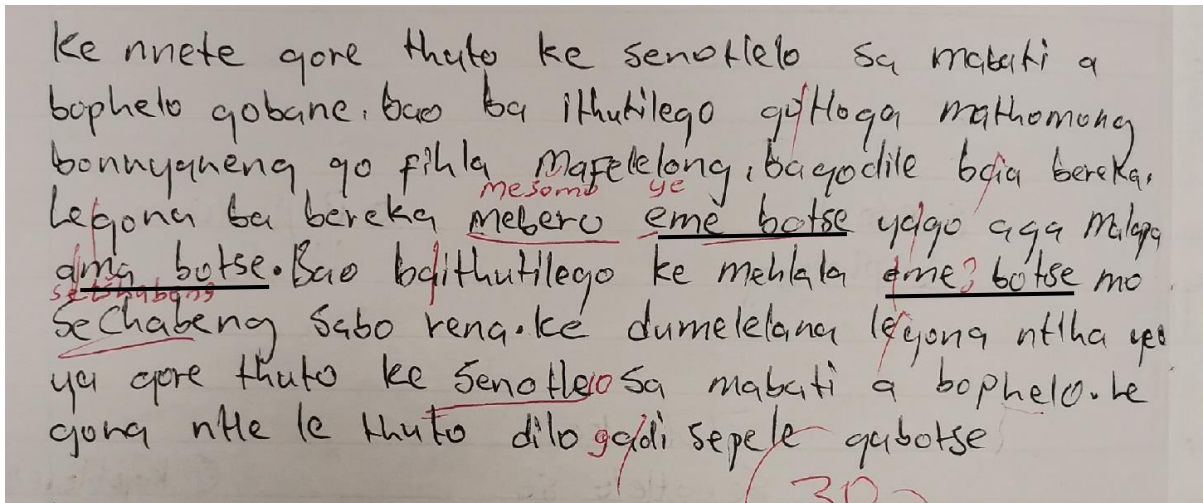 Ke nnete gore thuto ke senotlelo sa mabati a
bophelo gobane. bao ba ithutilego go tloga mathomong
bonnyaneng go fihla mafelelong, bagodile baia bereka.
mesomo ye
Le gona ba bereka mebero eme botse yago aga malapa
ama botse. Bao baithutilego ke mehlala eme? botse mo
setšhabeng
Sechabeng sabo rena. ke dumelelana le gona ntlha yeo
ya gore thuto ke Senotlelo sa mabati a bophelo. Le
gona ntle le thuto dilo gadi sepele gabotse
30